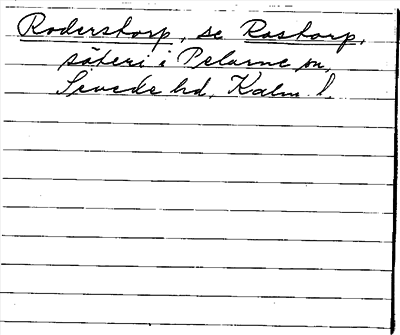 Roderstorp, se Rostorp,
säteri i Pelarne sn,
Sevede hd, Kalm. l.